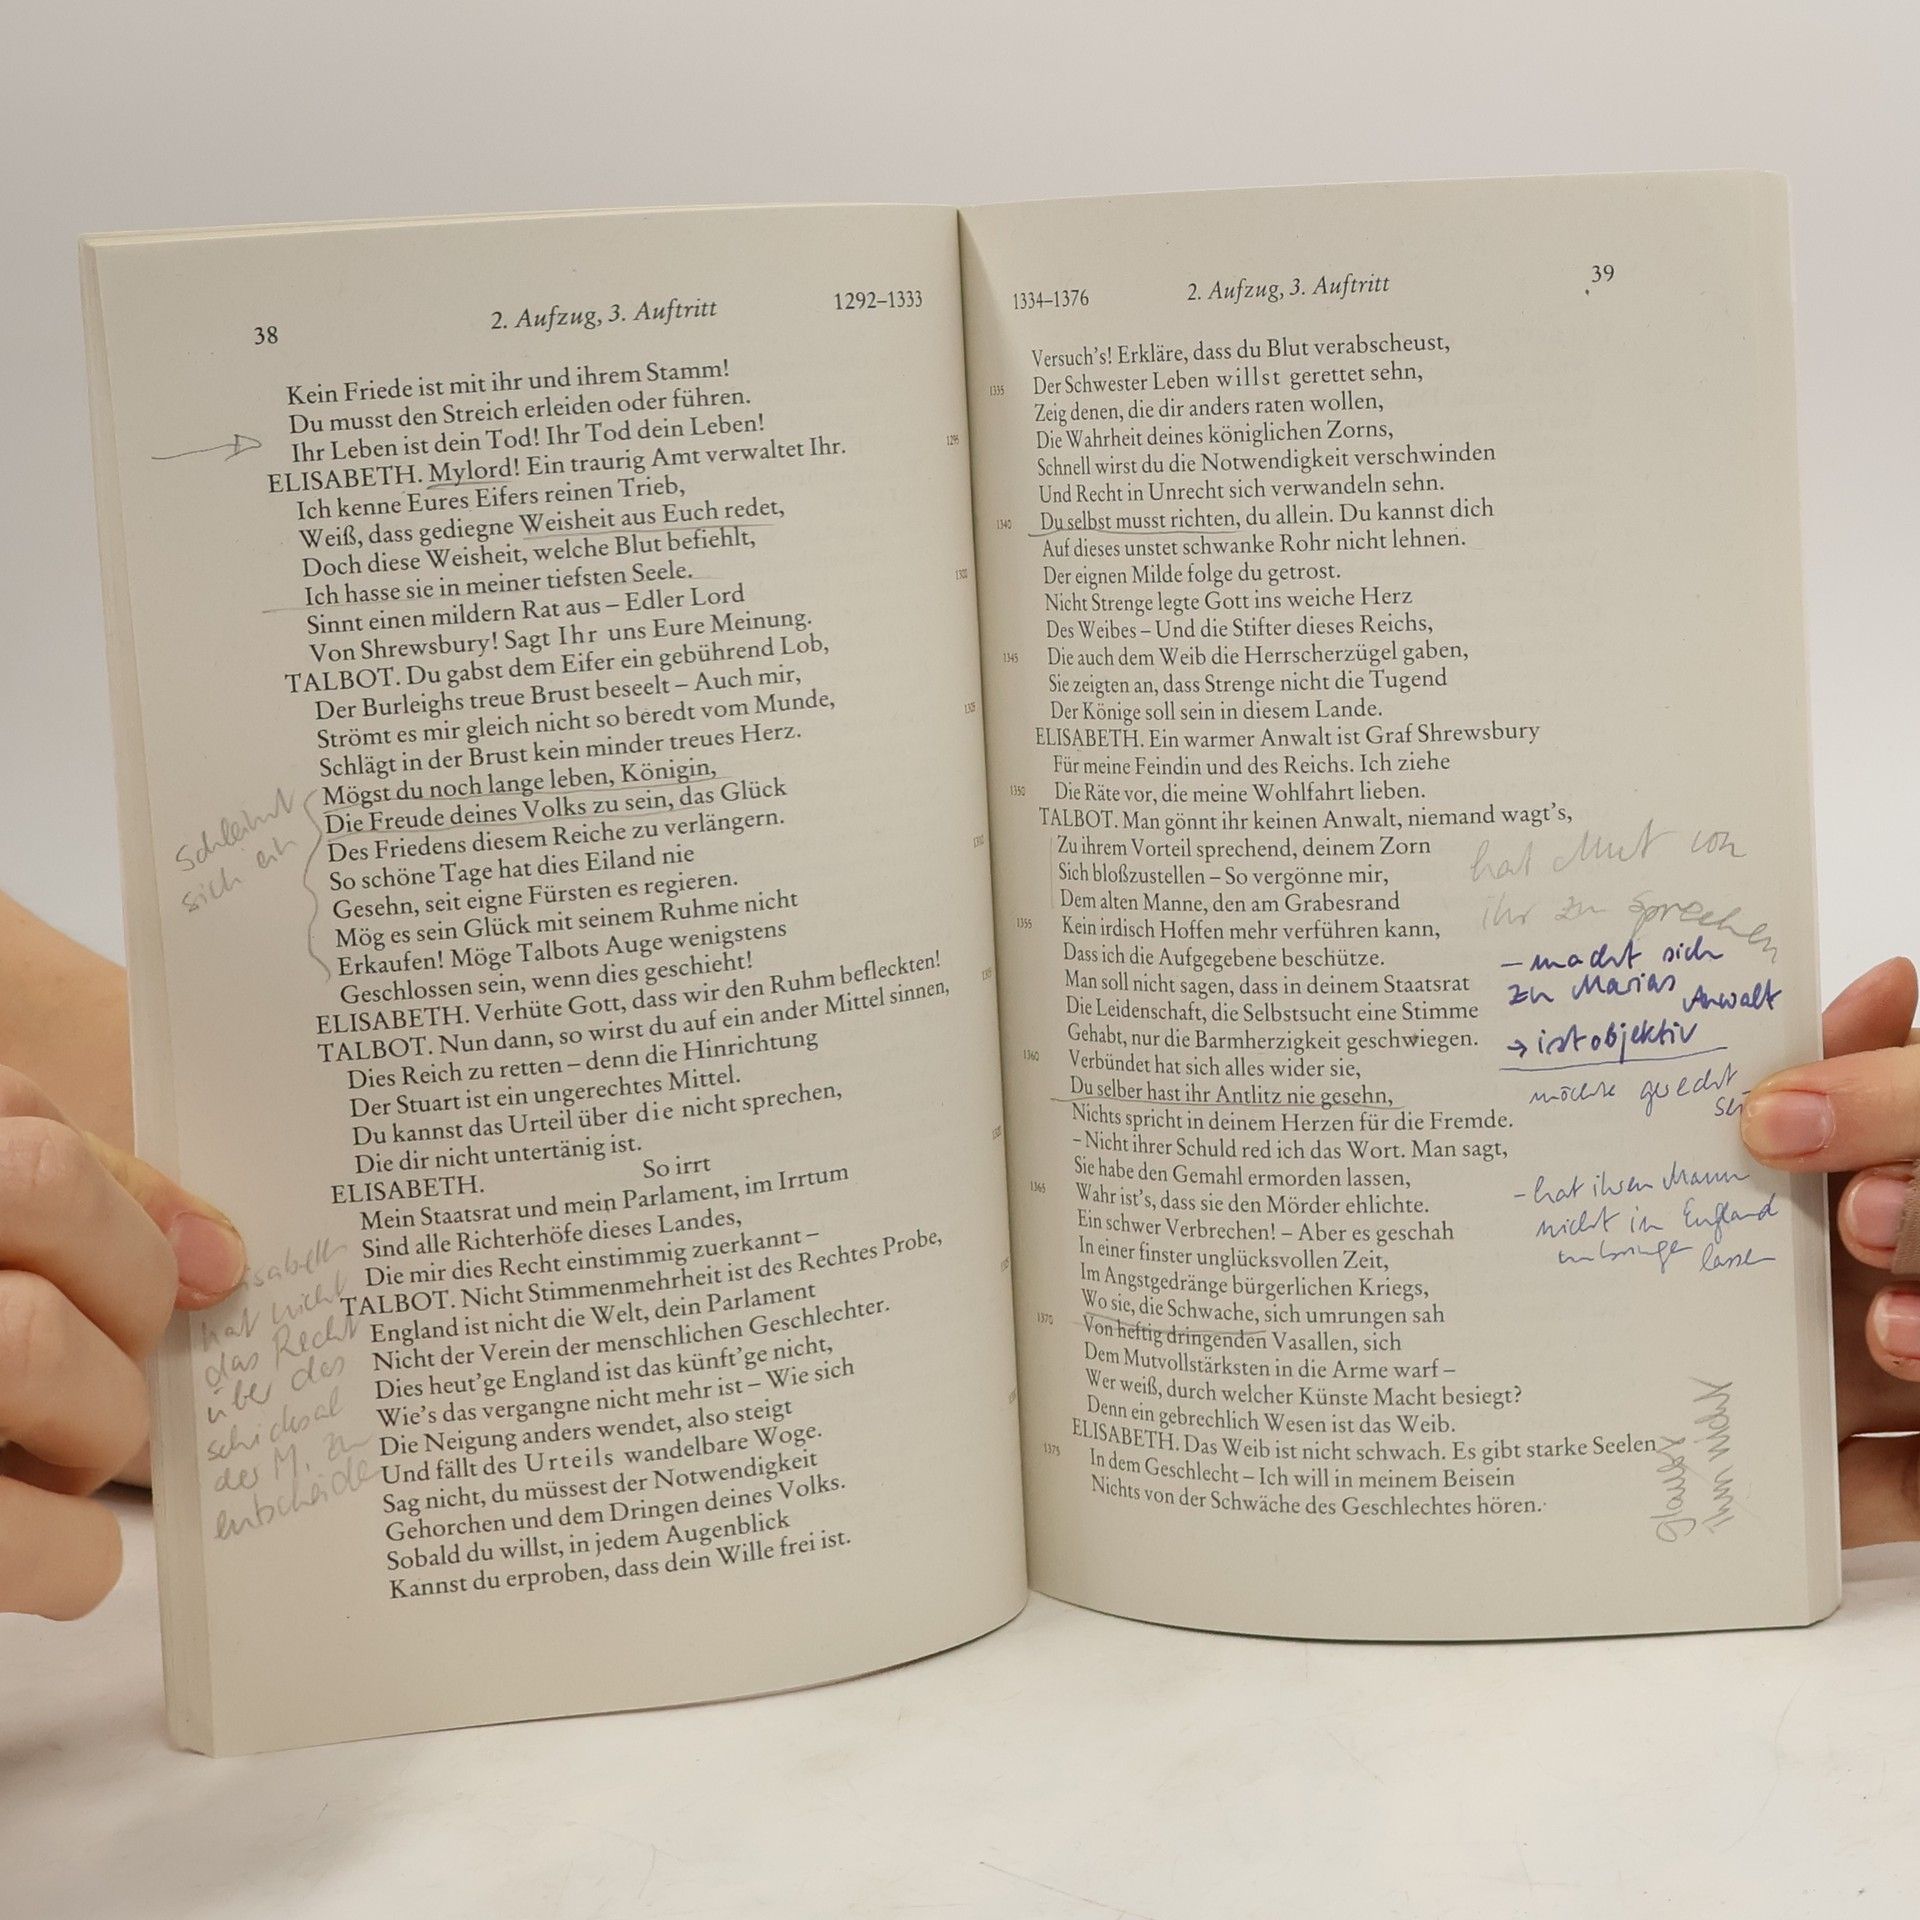 38
2. Aufzug, 3. Auftritt
1292–1333
Kein Friede ist mit ihr und ihrem Stamm!
Du musst den Streich erleiden oder führen.
Ihr Leben ist dein Tod! Ihr Tod dein Leben!
ELISABETH. Mylord! Ein traurig Amt verwaltet Ihr.
1295
Ich kenne Eures Eifers reinen Trieb,
Weiß, dass gediegne Weisheit aus Euch redet,
Doch diese Weisheit, welche Blut befiehlt,
Ich hasse sie in meiner tiefsten Seele.
Sinnt einen mildern Rat aus – Edler Lord
1300
Von Shrewsbury! Sagt Ihr uns Eure Meinung.
TALBOT. Du gabst dem Eifer ein gebührend Lob,
Der Burleighs treue Brust beseelt – Auch mir,
Strömt es mir gleich nicht so beredt vom Munde,
Schlägt in der Brust kein minder treues Herz.
1305
Mögst du noch lange leben, Königin,
Die Freude deines Volks zu sein, das Glück
Des Friedens diesem Reiche zu verlängern.
So schöne Tage hat dies Eiland nie
Gesehn, seit eigne Fürsten es regieren.
1310
Mög es sein Glück mit seinem Ruhme nicht
Erkaufen! Möge Talbots Auge wenigstens
Geschlossen sein, wenn dies geschieht!
Schleimt
sich ein
ELISABETH. Verhüte Gott, dass wir den Ruhm befleckten!
TALBOT. Nun dann, so wirst du auf ein ander Mittel sinnen,
1315
Dies Reich zu retten – denn die Hinrichtung
Der Stuart ist ein ungerechtes Mittel.
Du kannst das Urteil über die nicht sprechen,
Die dir nicht untertänig ist.
ELISABETH. So irrt
Mein Staatsrat und mein Parlament, im Irrtum
1320
Sind alle Richterhöfe dieses Landes,
Die mir dies Recht einstimmig zuerkannt –
TALBOT. Nicht Stimmenmehrheit ist des Rechtes Probe,
England ist nicht die Welt, dein Parlament
Nicht der Verein der menschlichen Geschlechter.
1325
Dies heut'ge England ist das künft'ge nicht,
Wie's das vergangne nicht mehr ist – Wie sich
Die Neigung anders wendet, also steigt
Und fällt des Urteils wandelbare Woge.
Sag nicht, du müssest der Notwendigkeit
1330
Gehorchen und dem Dringen deines Volks.
Sobald du willst, in jedem Augenblick
Kannst du erproben, dass dein Wille frei ist.
isabeth
hat nicht
das Recht
über das
schicksal
der M. zu
entscheiden
1334–1376
2. Aufzug, 3. Auftritt
39
Versuch's! Erkläre, dass du Blut verabscheust,
1335
Der Schwester Leben willst gerettet sehn,
Zeig denen, die dir anders raten wollen,
Die Wahrheit deines königlichen Zorns,
Schnell wirst du die Notwendigkeit verschwinden
Und Recht in Unrecht sich verwandeln sehn.
1340
Du selbst musst richten, du allein. Du kannst dich
Auf dieses unstet schwanke Rohr nicht lehnen.
Der eignen Milde folge du getrost.
Nicht Strenge legte Gott ins weiche Herz
Des Weibes – Und die Stifter dieses Reichs,
1345
Die auch dem Weib die Herrscherzügel gaben,
Sie zeigten an, dass Strenge nicht die Tugend
Der Könige soll sein in diesem Lande.
ELISABETH. Ein warmer Anwalt ist Graf Shrewsbury
Für meine Feindin und des Reichs. Ich ziehe
1350
Die Räte vor, die meine Wohlfahrt lieben.
TALBOT. Man gönnt ihr keinen Anwalt, niemand wagt's,
Zu ihrem Vorteil sprechend, deinem Zorn
Sich bloßzustellen – So vergönne mir,
Dem alten Manne, den am Grabesrand
1355
Kein irdisch Hoffen mehr verführen kann,
Dass ich die Aufgegebene beschütze.
Man soll nicht sagen, dass in deinem Staatsrat
Die Leidenschaft, die Selbstsucht eine Stimme
Gehabt, nur die Barmherzigkeit geschwiegen.
1360
Verbündet hat sich alles wider sie,
Du selber hast ihr Antlitz nie gesehn,
Nichts spricht in deinem Herzen für die Fremde.
– Nicht ihrer Schuld red ich das Wort. Man sagt,
Sie habe den Gemahl ermorden lassen,
1365
Wahr ist's, dass sie den Mörder ehlichte.
Ein schwer Verbrechen! – Aber es geschah
In einer finster unglücksvollen Zeit,
Im Angstgedränge bürgerlichen Kriegs,
Wo sie, die Schwache, sich umrungen sah
1370
Von heftig dringenden Vasallen, sich
Dem Mutvollstärksten in die Arme warf –
Wer weiß, durch welcher Künste Macht besiegt?
Denn ein gebrechlich Wesen ist das Weib.
ELISABETH. Das Weib ist nicht schwach. Es gibt starke Seelen
1375
In dem Geschlecht – Ich will in meinem Beisein
Nichts von der Schwäche des Geschlechtes hören.
hat Mut von
ihr zu sprechen
– macht sich
zu Marias Anwalt
→ ist objektiv
möchte gerecht
sei
– hat ihren Mann
nicht in England
umbringen lassen
glaubt
ihm nicht